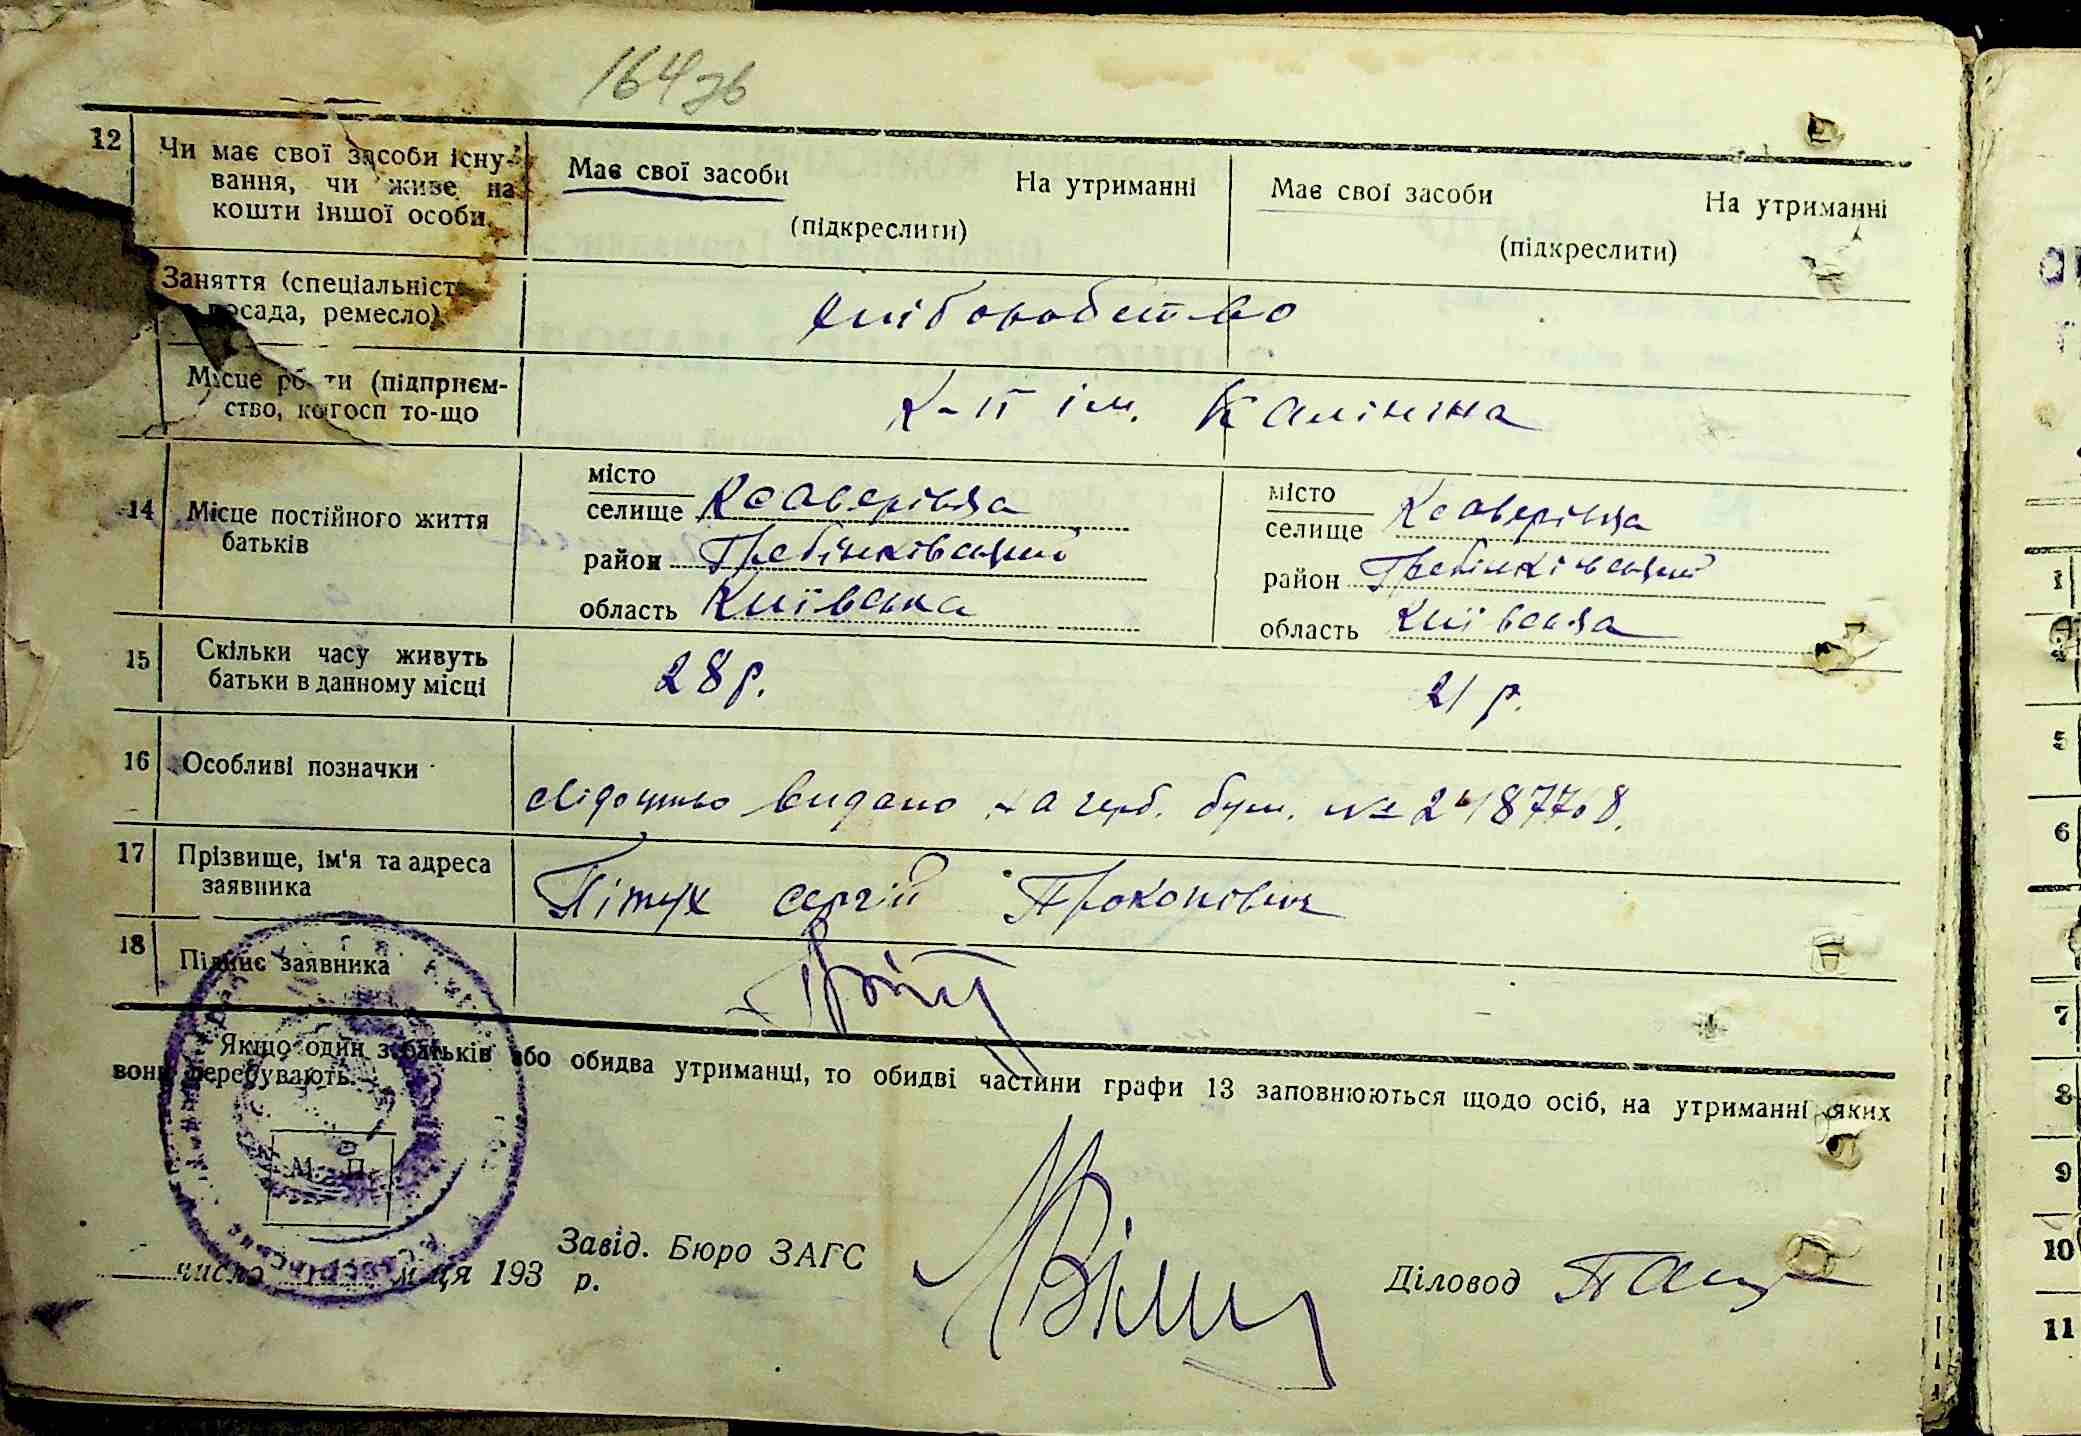 164зв
12
Чи має свої засоби існу-
вання, чи живе на
кошти іншої особи.
Має свої засоби На утриманні
(підкреслити)
Має свої засоби На утриманні
(підкреслити)
Заняття (спеціальніст
посада, ремесло)
хліборобство
Місце роботи (підприєм-
ство, колгосп то-що
к-п ім. Калініна
14
Місце постійного життя
батьків
місто
селище Ксаверівка
район Гребінківський
область Київська
місто
селище Ксаверівка
район Гребінківський
область Київська
15
Скільки часу живуть
батьки в данному місці
28 р.
21 р.
16
Особливі позначки
свідоцтво видано на герб. бум. № 2487708.
17
Прізвище, ім'я та адреса
заявника
Пітух Сергій Прокопівич
18
Підпис заявника
Якщо один з батьків або обидва утриманці, то обидві частини графи 13 заповнюються щодо осіб, на утриманні яких
вони перебувають.
М. П.
число м-ця 193 р.
Завід. Бюро ЗАГС
Діловод
1
5
6
7
8
9
10
11